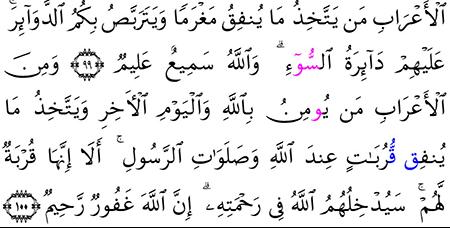 ٱلْأَعْرَابِ مَن يَتَّخِذُ مَا يُنفِقُ مَغْرَمًا وَيَتَرَبَّصُ بِكُمُ ٱلدَّوَآئِرَۚ
عَلَيْهِمْ دَآئِرَةُ ٱلسُّوٓءِۗ وَٱللَّهُ سَمِيعٌ عَلِيمٌ ﴿٩٩﴾ وَمِنَ
ٱلْأَعْرَابِ مَن يُومِنُ بِٱللَّهِ وَٱلْيَوْمِ ٱلْأَخِرِ وَيَتَّخِذُ مَا
يُنفِق قُّرُبَٰتٍ عِندَ ٱللَّهِ وَصَلَوَٰتِ ٱلرَّسُولِۚ أَلَا إِنَّهَا قُرْبَةٌ
لَّهُمْۚ سَيُدْخِلُهُمُ ٱللَّهُ فِى رَحْمَتِهِۦۗ إِنَّ ٱللَّهَ غَفُورٌ رَّحِيمٌ ﴿١٠٠﴾